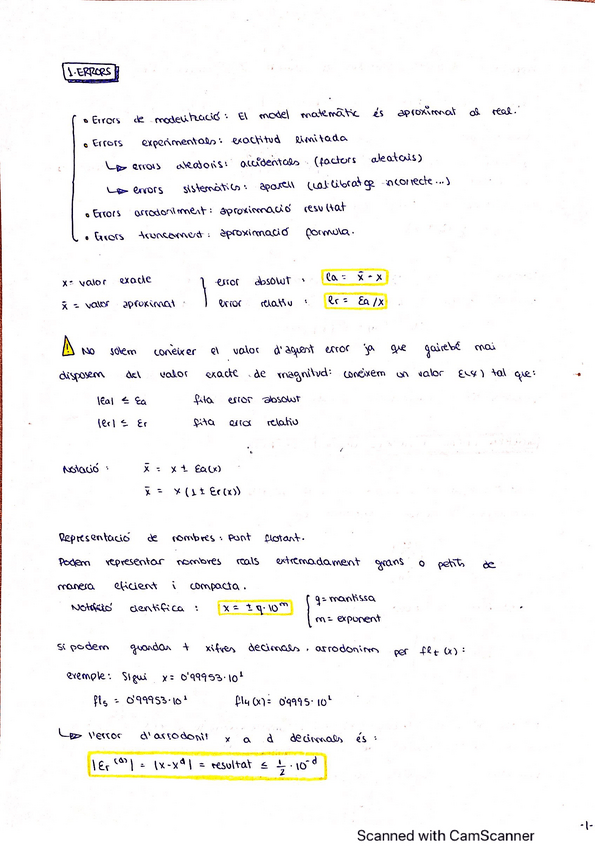 1. ERRORS
• Errors de modelització: El model matemàtic és aproximat al real.
• Errors experimentals: exactitud limitada
↳ errors aleatoris: accidentals (factors aleatoris)
↳ errors sistemàtics: aparell (calibratge incorrecte...)
• Errors arrodoniment: aproximació resultat
• Errors truncament: aproximació formula.
x = valor exacte
x̄ = valor aproximat
error absolut: ea = x̄ - x
error relatiu: er = Ea/x
⚠ No solem conèixer el valor d'aquest error ja que gairebé mai
disposem del valor exacte de magnitud: coneixem un valor E(x) tal que:
|ea| ≤ Ea fita error absolut
|er| ≤ Er fita error relatiu
Notació: x̄ = x ± Ea(x)
x̄ = x (1 ± Er(x))
Representació de nombres: Punt flotant.
Podem representar nombres reals extremadament grans o petits de
manera eficient i compacta.
Notació científica: x = ± q · 10^m
q = mantissa
m = exponent
Si podem guardar t xifres decimals, arrodonim per fl_t (x):
exemple: Sigui x = 0'99953·10¹
fl₅ = 0'99953·10¹ fl₄(x) = 0'9995·10¹
↳ l'error d'arrodonir x a d decimals és:
|Er^(a)| = |x-x^d| = resultat ≤ 1/2 · 10^-d
-1-
Scanned with CamScanner